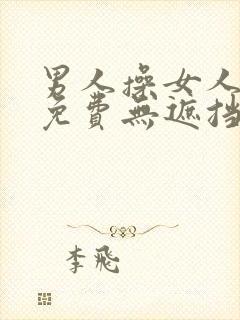 男人操女人
免費無遮挡
李飛